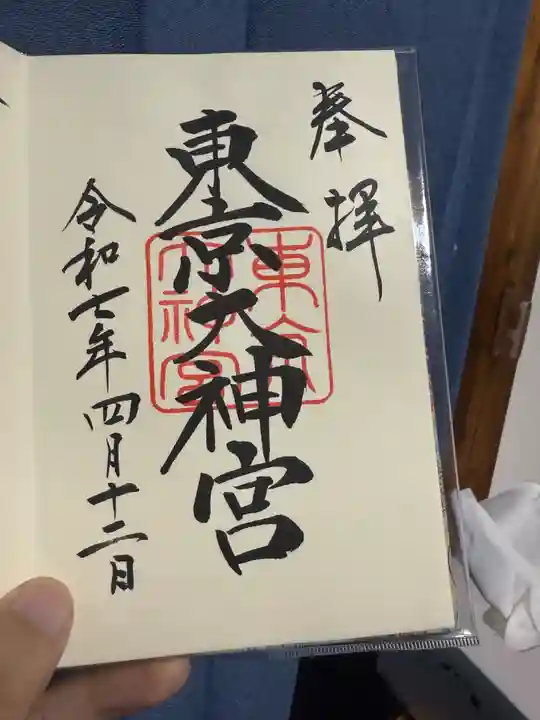 奉拝
東京大神宮
東京大神宮
令和七年四月十二日